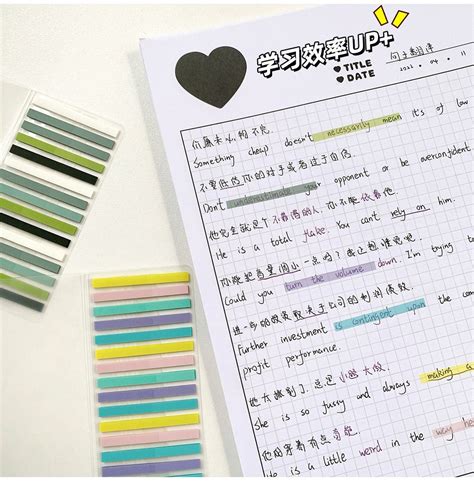 学习效率UP+
TITLE
DATE
句子翻译
2022 . 04 . 11
Something cheap doesn't necessarily mean it's of low
不要低估你的对手或者过于自信
Don't underestimate your opponent or be overconfident
他完全就是个不靠谱的人，你不能依靠他.
He is a total flake. You can't rely on him.
你能把音量调小一点吗？
Could you turn the volume down. I'm trying to
进一步的投资取决于公司的利润
Further investment is contingent upon the com
profit performance.
她太挑剔了，总是小题大做.
She is so fussy and always making a
He is a little weird in the way he